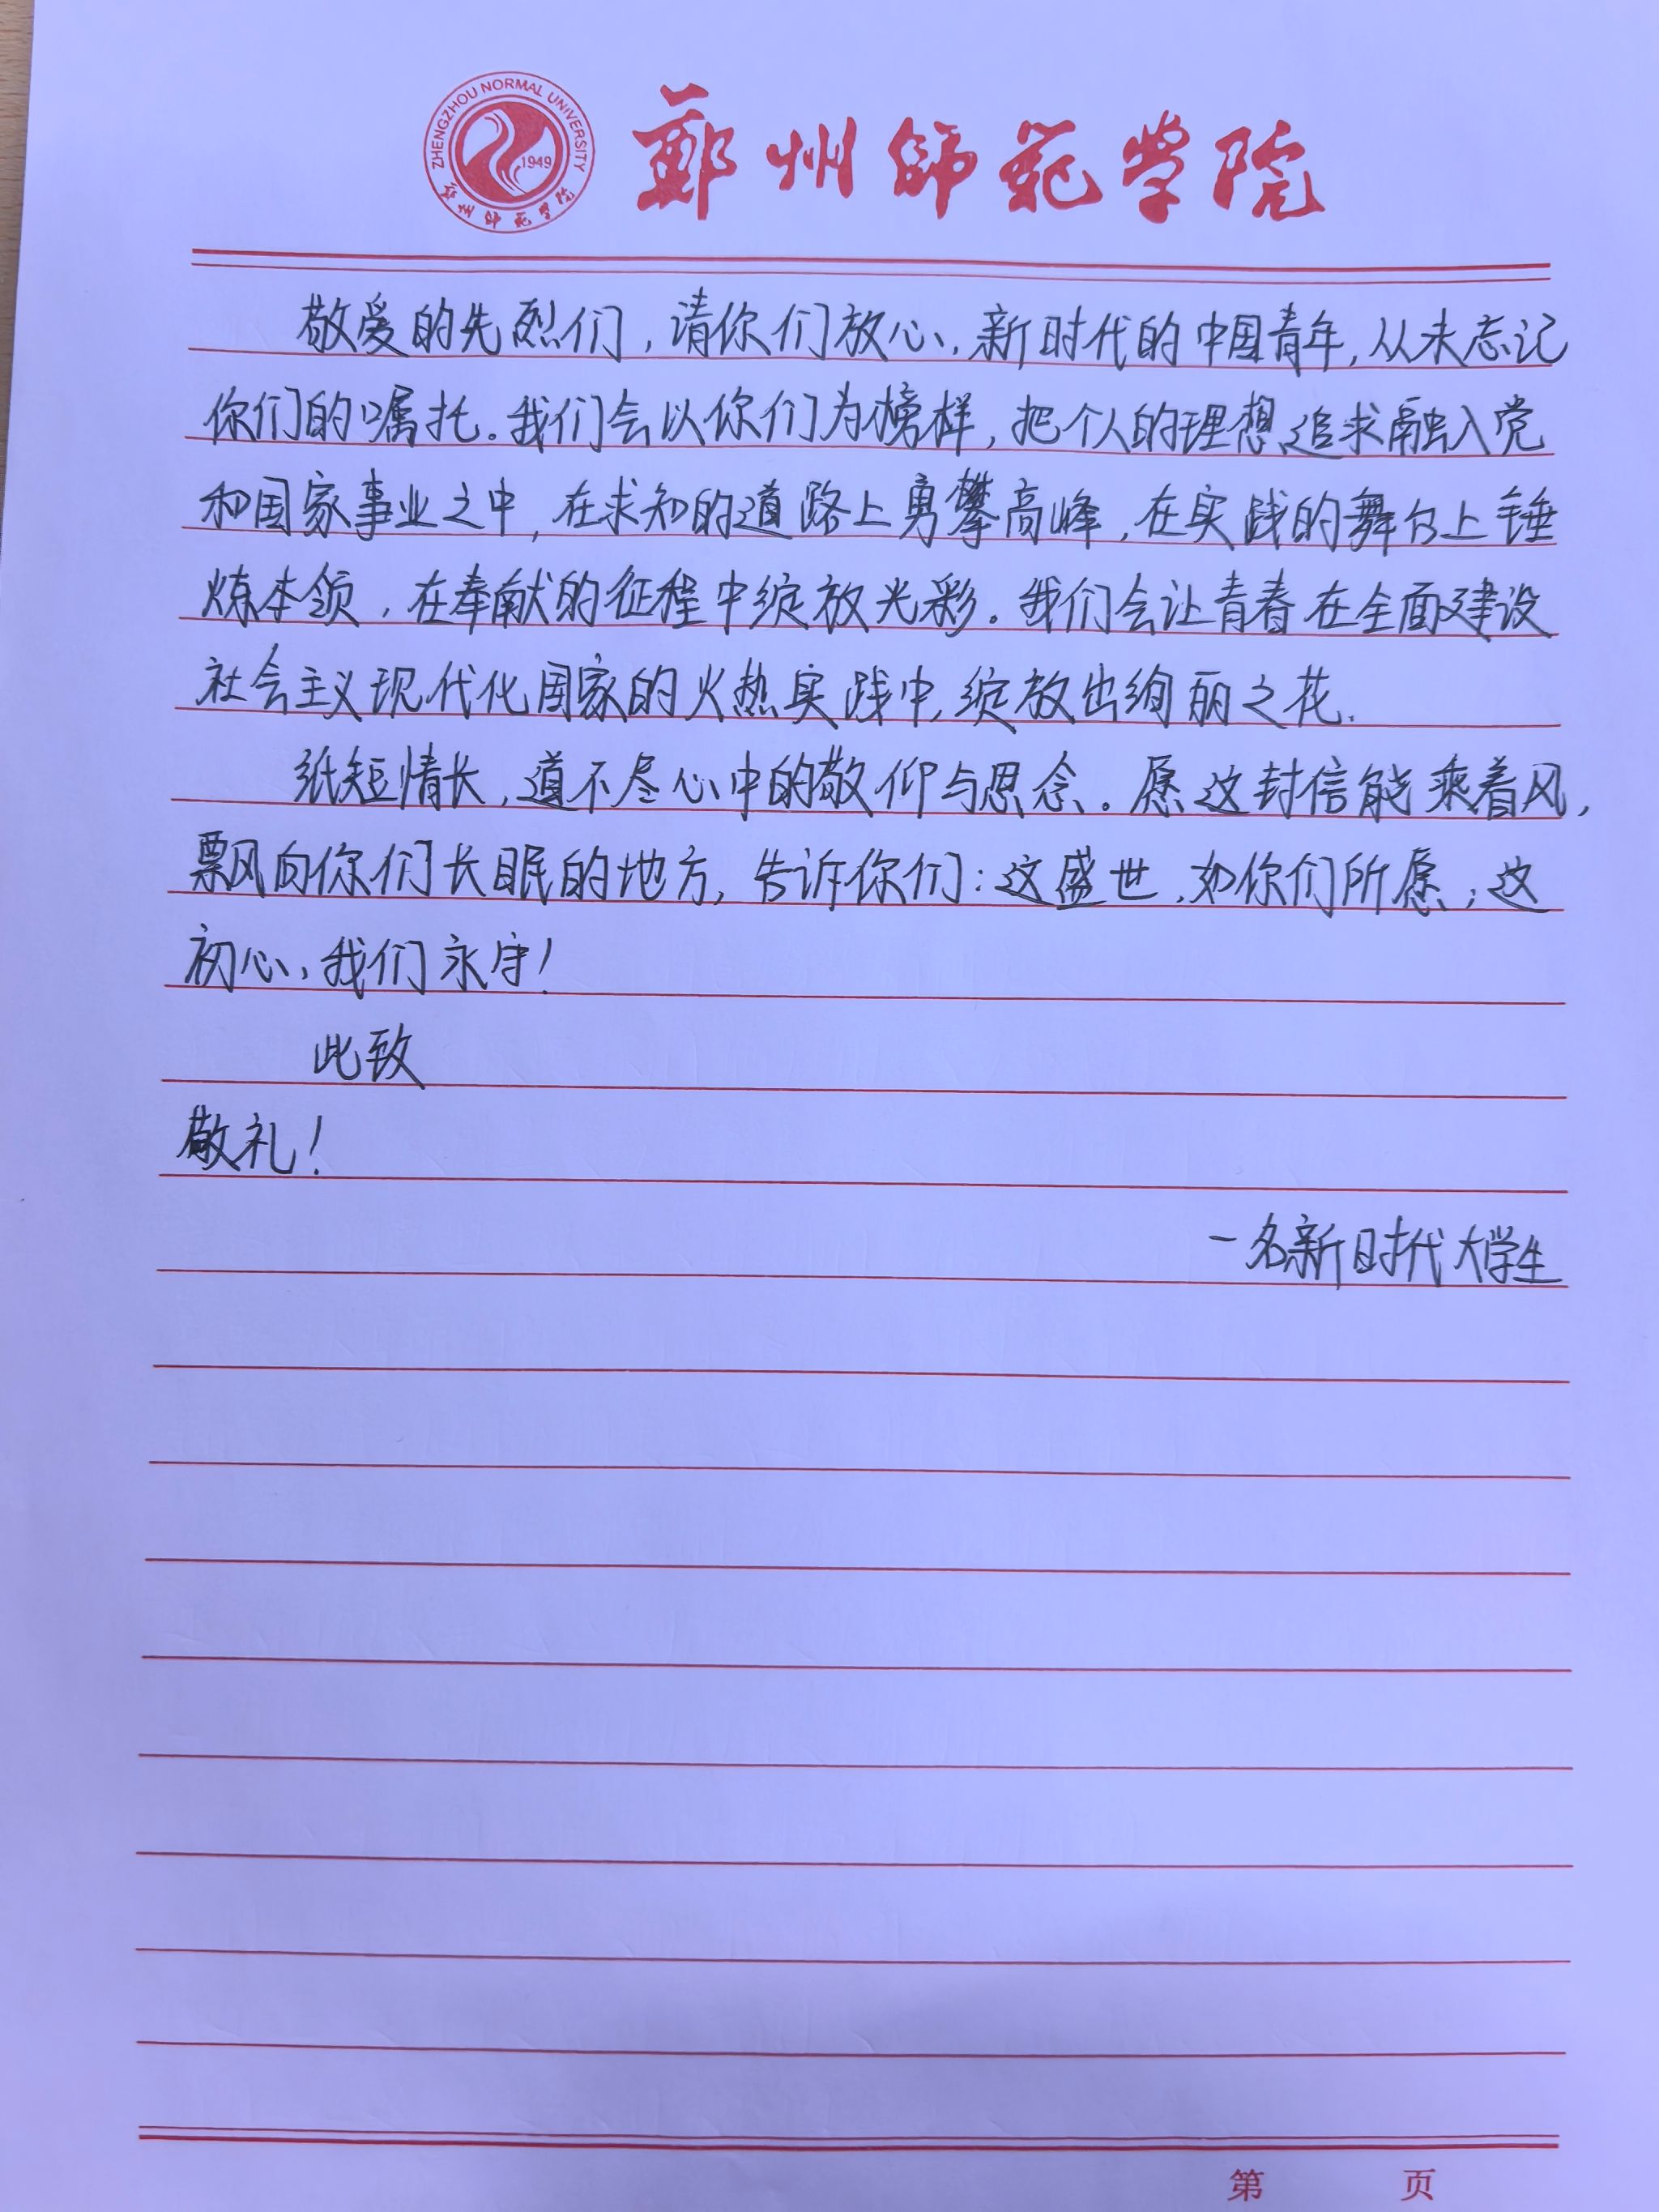 ZHENGZHOU NORMAL UNIVERSITY
1949
郑州师范学院
郑州师范学院
敬爱的先烈们，请你们放心，新时代的中国青年，从未忘记
你们的嘱托。我们会以你们为榜样，把个人的理想追求融入党
和国家事业之中，在求知的道路上勇攀高峰，在实践的舞台上锤
炼本领，在奉献的征程中绽放光彩。我们会让青春在全面建设
社会主义现代化国家的火热实践中，绽放出绚丽之花.
纸短情长，道不尽心中的敬仰与思念。愿这封信能乘着风，
飘向你们长眠的地方，告诉你们：这盛世，如你们所愿；这
初心，我们永守！
此致
敬礼！
一名新时代大学生
第 页